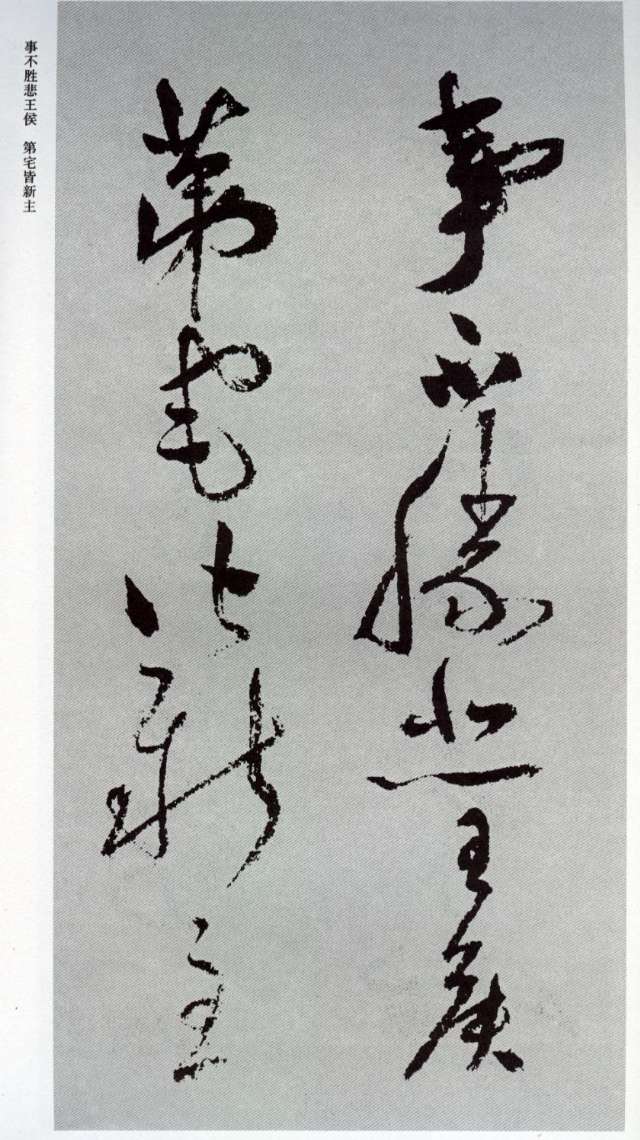 事不胜悲王侯
第宅皆新主
事不勝悲王侯
第宅皆新主